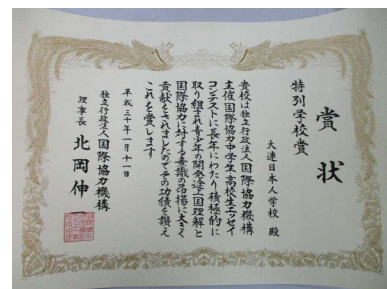 賞状
特別学校賞
大連日本人学校 殿
貴校は独立行政法人国際協力機構
主催国際協力中学生・高校生エッセイ
コンテストに長年にわたり積極的に
取り組まれ青少年の開発途上国理解と
国際協力に対する意識の昂揚に大きく
貢献をされましたのでその功績を讃え
これを賞します
平成三十年一月十一日
独立行政法人国際協力機構
理事長 北岡伸一